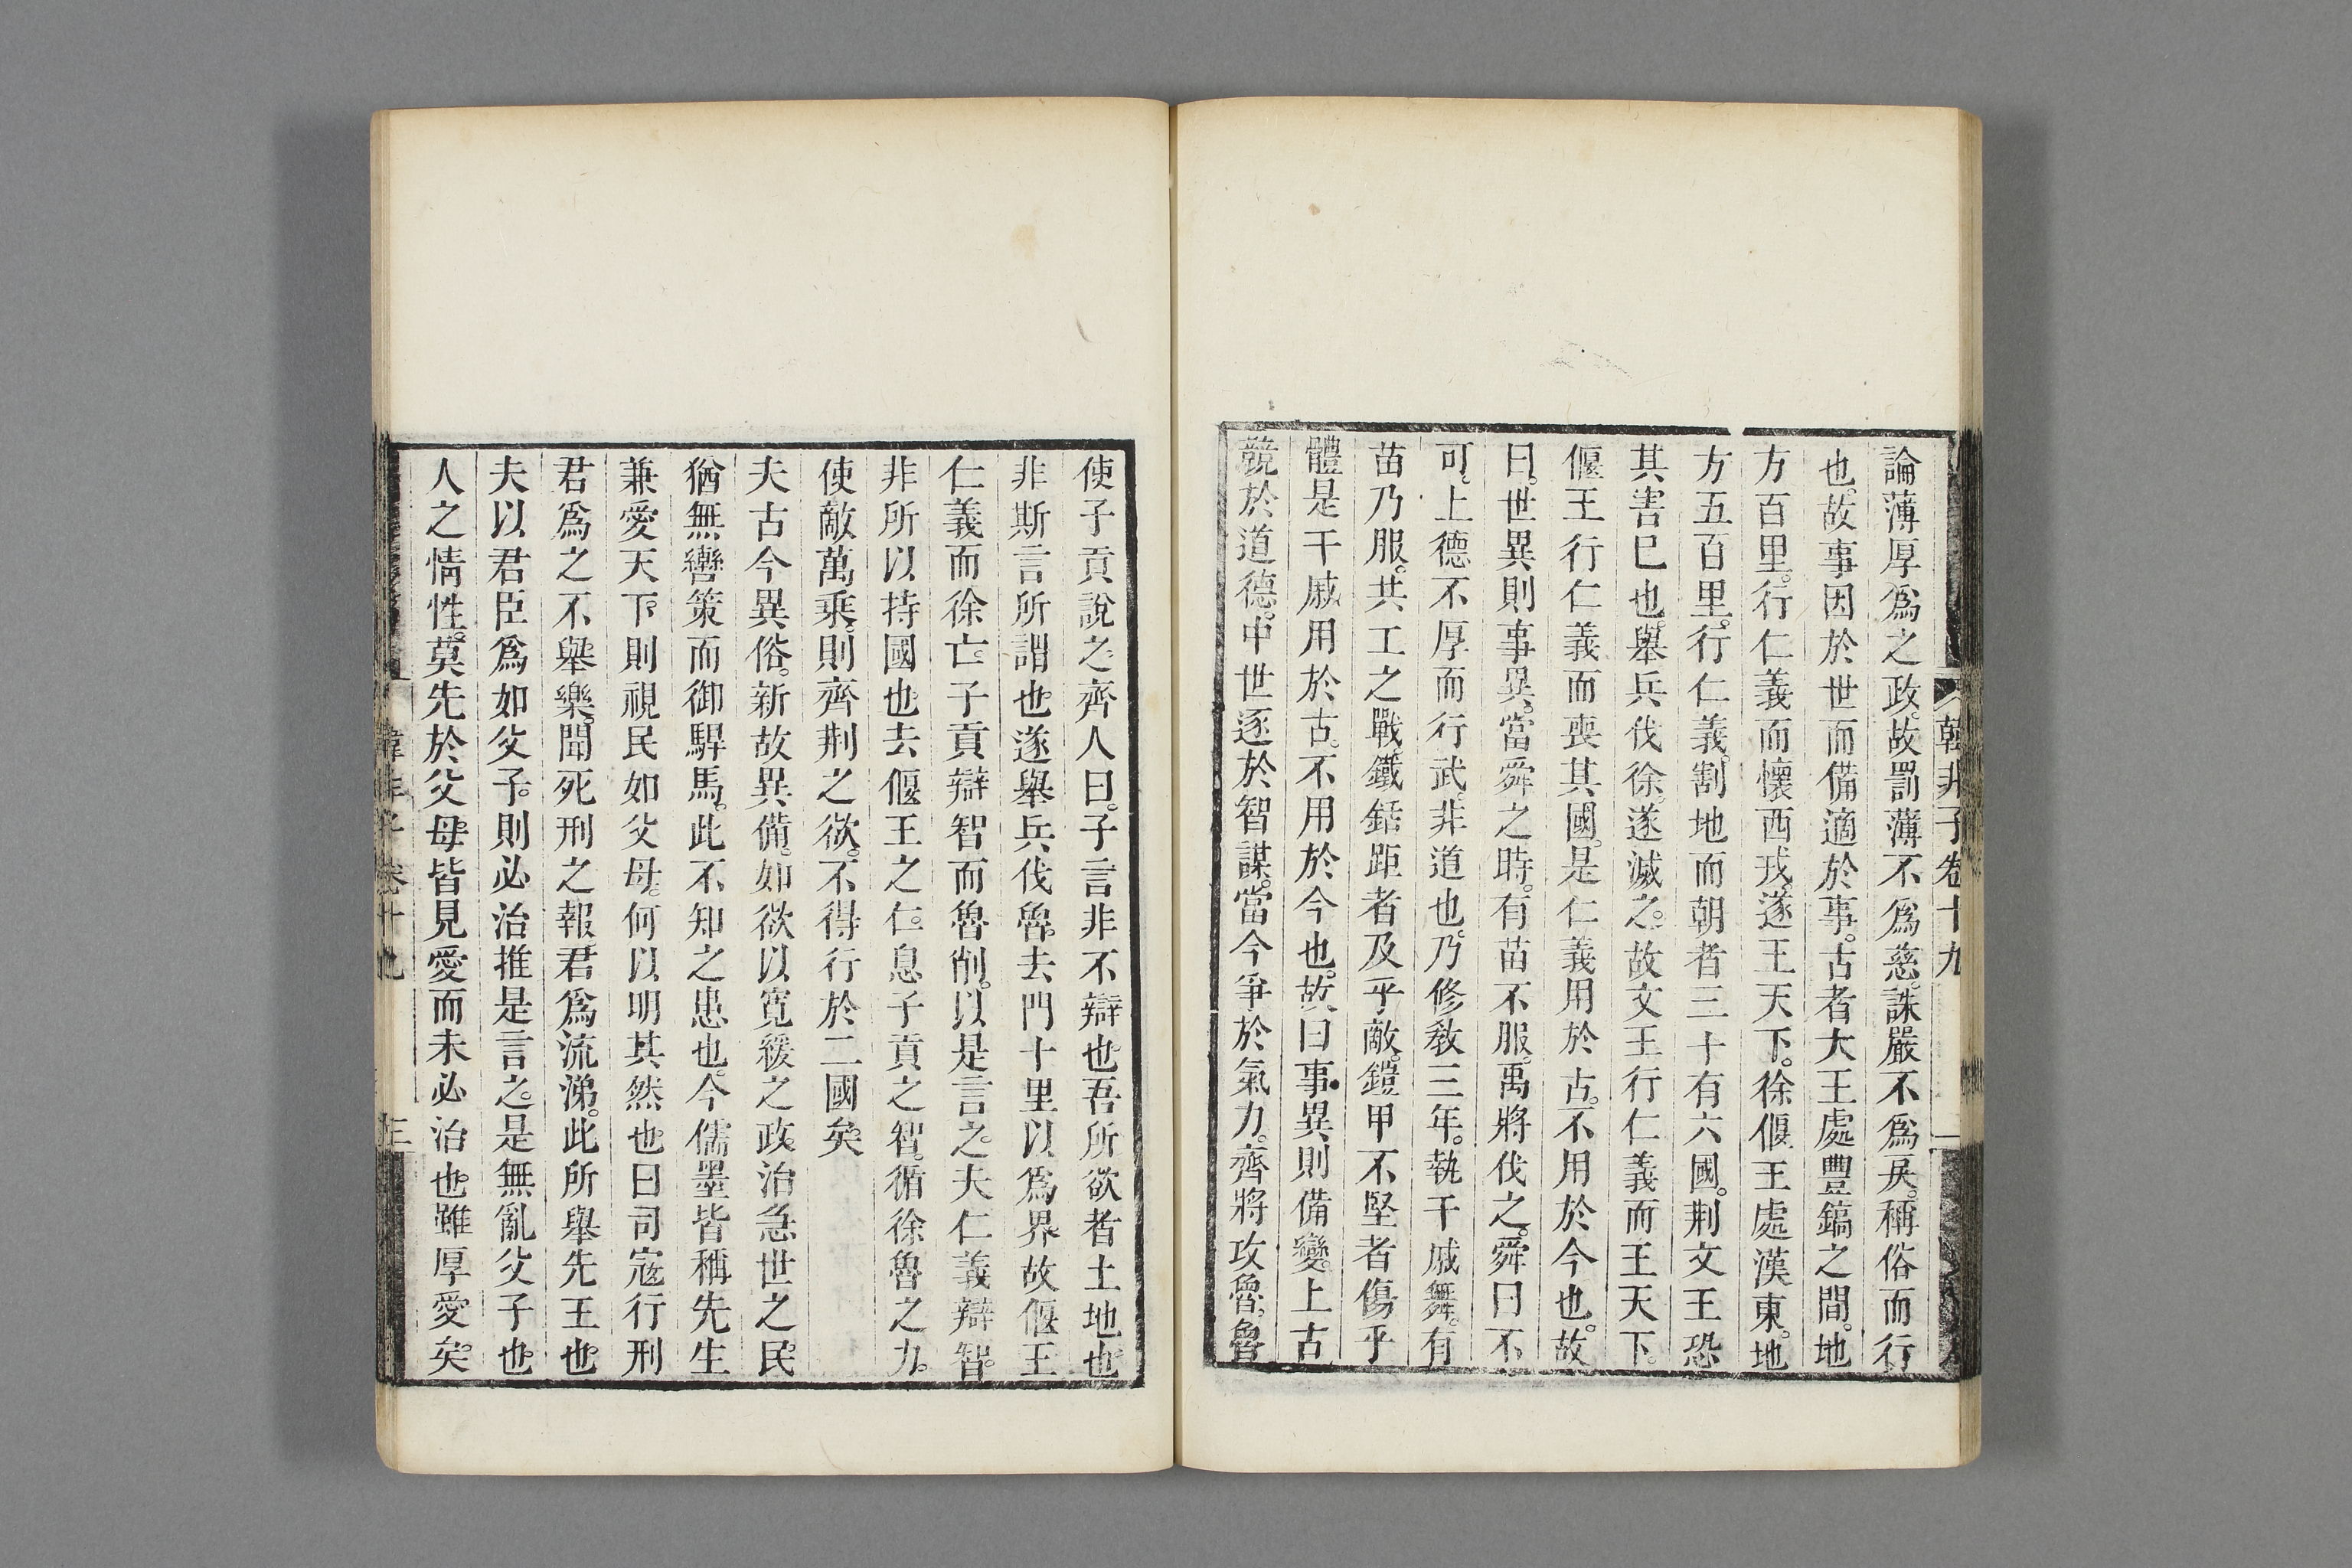 韓非子卷十九
論薄厚爲之政。故罰薄不爲慈。誅嚴不爲戾。稱俗而行
也。故事因於世而備適於事。古者大王處豐鎬之間。地
方百里。行仁義而懷西戎。遂王天下。徐偃王處漢東。地
方五百里。行仁義。割地而朝者三十有六國。荆文王恐
其害巳也。舉兵伐徐。遂滅之。故文王行仁義而王天下。
偃王行仁義而喪其國。是仁義用於古。不用於今也。故
曰。世異則事異。當舜之時。有苗不服。禹將伐之。舜曰不
可。上德不厚而行武。非道也。乃修敎三年。執干戚舞。有
苗乃服。共工之戰。鐵銛距者及乎敵。鎧甲不堅者傷乎
體。是干戚用於古。不用於今也。故曰事異則備變。上古
競於道德。中世逐於智謀。當今爭於氣力。齊將攻魯。魯
使子貢說之。齊人曰。子言非不辯也。吾所欲者土地也。
非斯言所謂也。遂舉兵伐魯。去門十里以爲界。故偃王
仁義而徐亡。子貢辯智而魯削。以是言之。夫仁義辯智。
非所以持國也。去偃王之仁。息子貢之智。循徐魯之力。
使敵萬乘。則齊荆之欲。不得行於二國矣。
夫古今異俗。新故異備。如欲以寛緩之政。治急世之民。
猶無轡策而御駻馬。此不知之患也。今儒墨皆稱先生
兼愛天下。則視民如父母。何以明其然也。曰司寇行刑
君爲之不舉樂。聞死刑之報。君爲流涕。此所舉先王也。
夫以君臣爲如父子。則必治。推是言之。是無亂父子也。
人之情性。莫先於父母。皆見愛而未必治也。雖厚愛矣。
韓非子卷十九
三